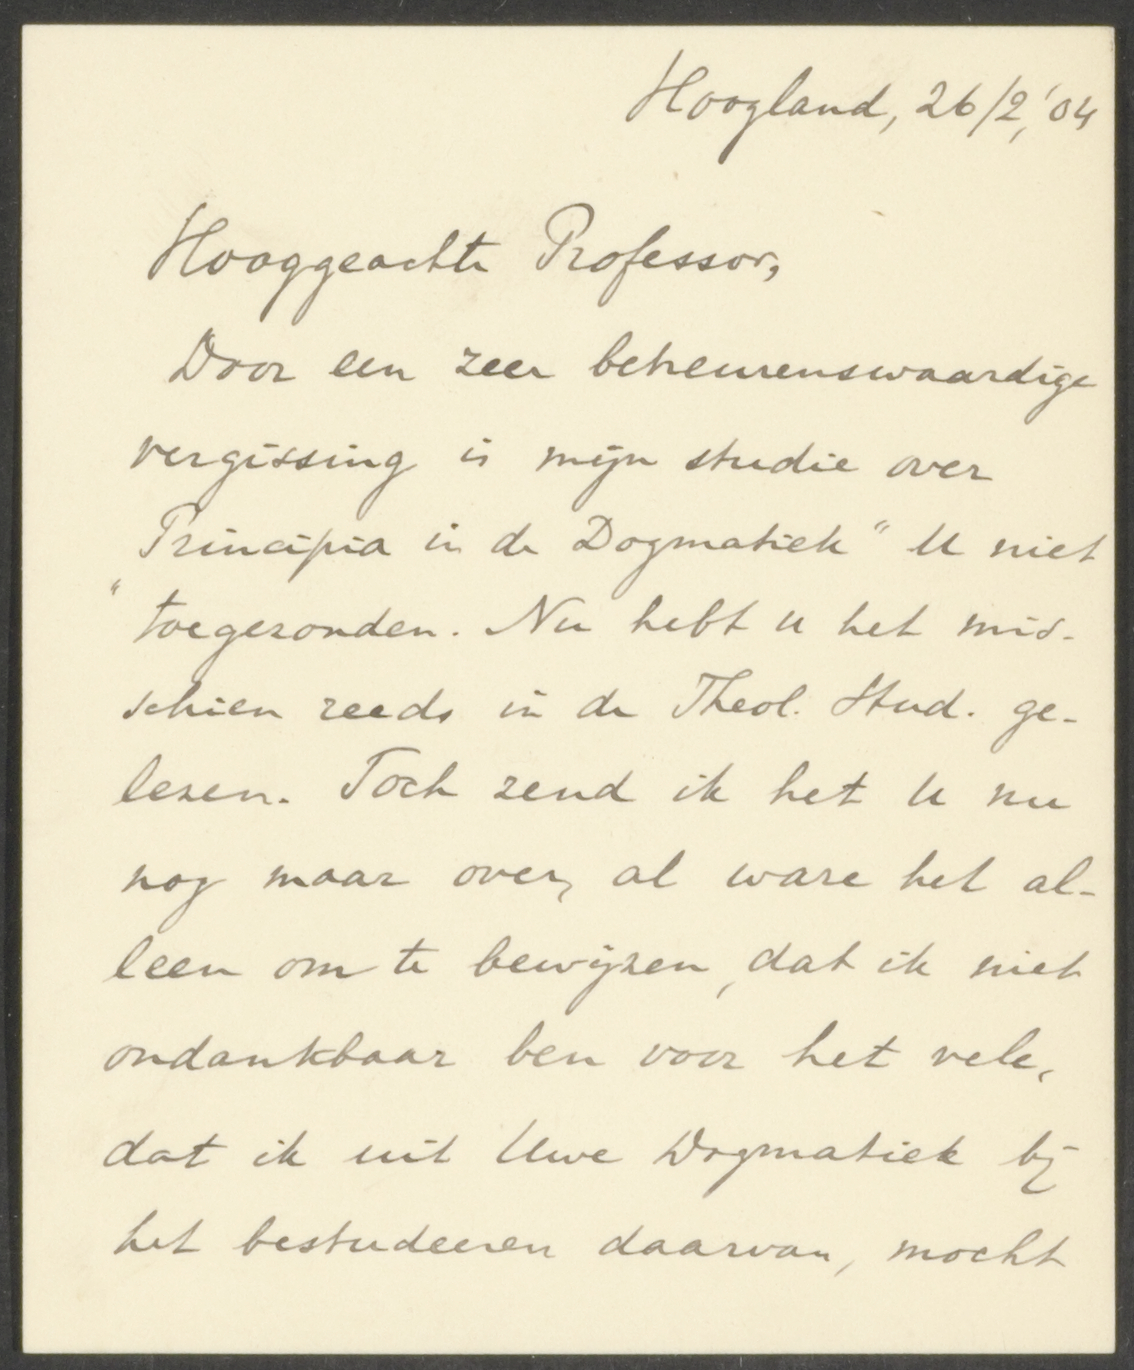 Hoogland, 26/2,'04
Hooggeachte Professor,
Door een zeer betreurenswaardige
vergissing is mijn studie over
"Principia in de Dogmatiek" U niet
toegezonden. Nu hebt u het mis-
schien reeds in de Theol. Stud. ge-
lezen. Toch zend ik het U nu
nog maar over, al ware het al-
leen om te bewijzen, dat ik niet
ondankbaar ben voor het vele,
dat ik uit Uwe Dogmatiek bij
het bestudeeren daarvan, mocht